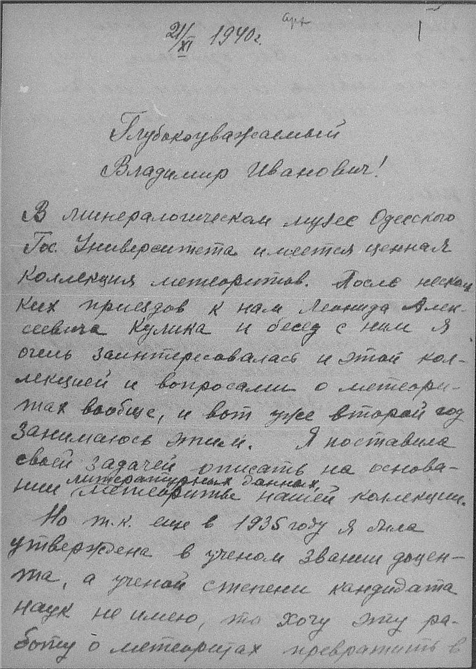 21/XI 1940г.
Глубокоуважаемый
Владимир Иванович!
В минералогическом музее Одесского
Гос. Университета имеется ценная
коллекция метеоритов. После несколь
ких приездов к нам Леонида Алек-
сеевича Кулика и бесед с ним я
очень заинтересовалась и этой кол-
лекцией и вопросами о метеори-
тах вообще, и вот уже второй год
занимаюсь этим. Я поставила
своей задачей описать на основа-
нии литературных данных, метеориты нашей коллекции.
Но т.к. еще в 1935 году я была
утверждена в ученом звании доцен-
та, а ученой степени кандидата
наук не имею, то хочу эту ра-
боту о метеоритах превратить в